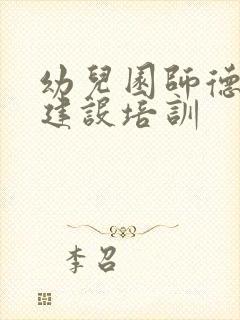 幼兒園師德
建設培訓
李召